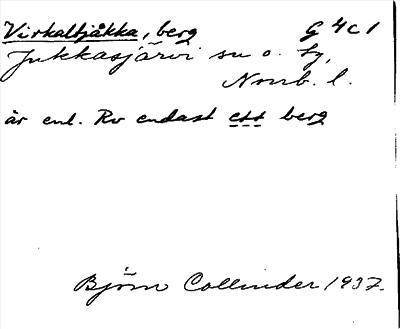 Virkaltjåkka, berg G 4 c 1
Jukkasjärvi sn o. tg,
Norrb. l.
är enl. Rv endast ett berg
Björn Collinder 1937.